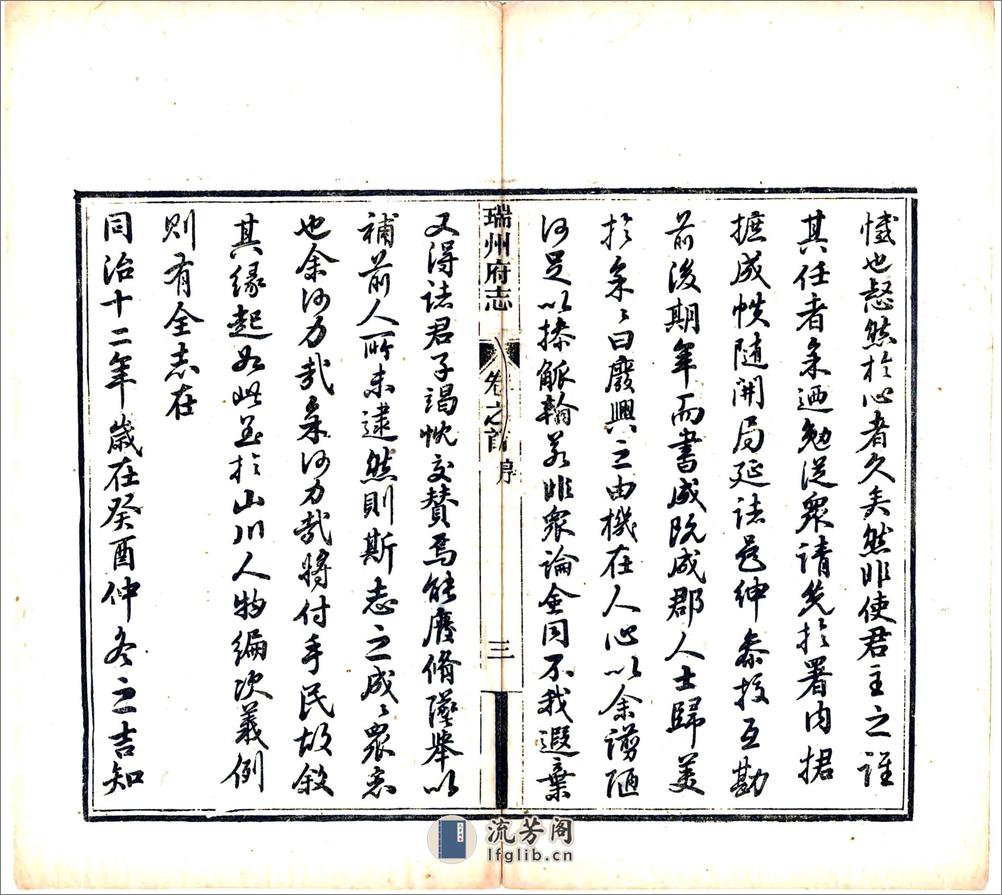 憾也惄然於心者久矣然非使君主之誰
其任者余迺勉從衆請先於署內捃
摭成帙隨開局延諸邑紳叅校互勘
前後期年而書成既成郡人士歸美
於余々曰廢興之由機在人心以余謭陋
何足以捧觚翰若非衆論僉同不我遐棄
瑞州府志
卷之首
序
三
又得諸君子竭忱交贊焉能廢脩墜舉以
補前人所未逮然則斯志之成々衆志
也余何力哉余何力哉將付手民故敘
其緣起如此至於山川人物編次義例
則有全志在
同治十二年歲在癸酉仲冬之吉知
流芳阁
lfglib.cn